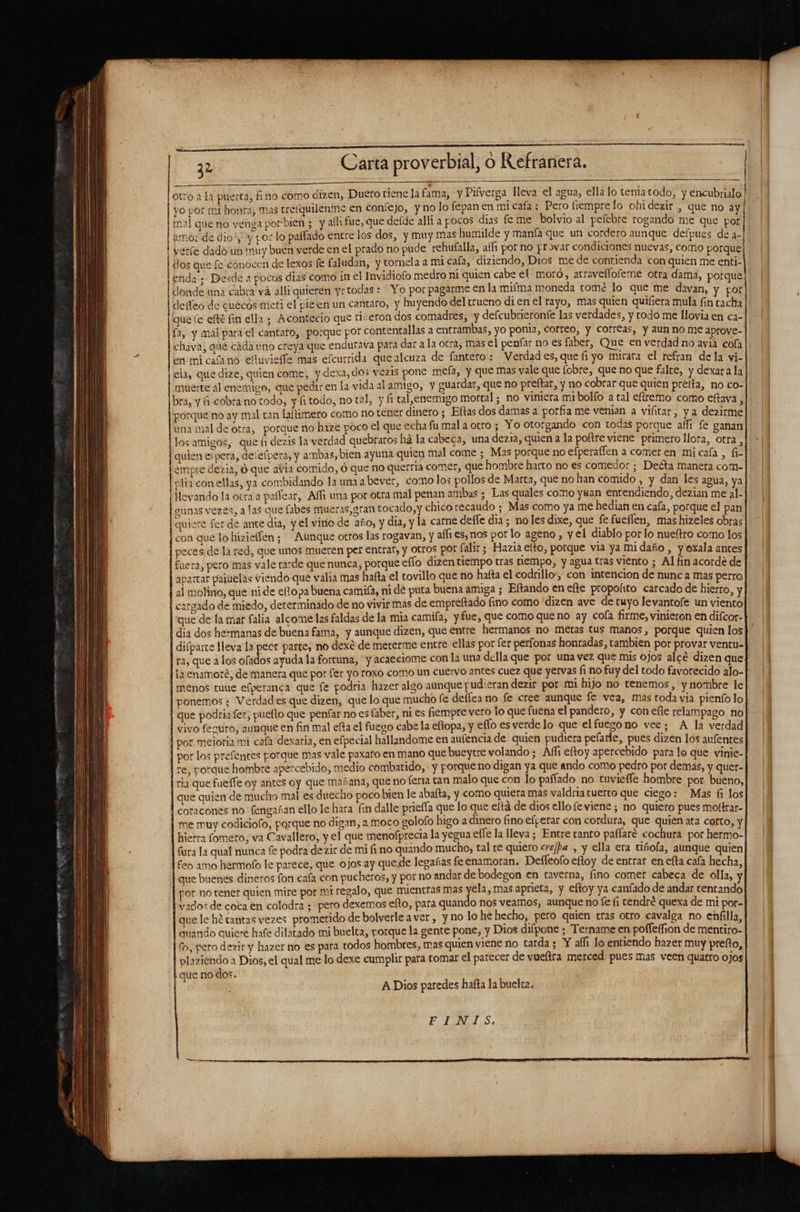 32 Carta proverbial, ò Refranera.
otro a la puerta, sino como dizen, Duero tiene la fama, y Pisverga lleva el agua, ella lo tenia todo, y encubrialo
yo por mi honra, mas tresquilenme en consejo, y no lo sepan en mi casa: Pero siempre lo ohi dezir, que no ay
mal que no venga por bien; y alli fue, que desde alli a pocos dias se me bolvio al pesebre rogando me que por
amor de dios, y por lo passado entre los dos, y muy mas humilde y mansa que un cordero aunque despues de a-
verse dado un muy buen verde en el prado no pude rehusalla, assi por no provar condiciones nuevas, como porque
dos que se conocen de lexos se saludan, y tornela a mi casa, diziendo, Dios me de contienda con quien me enti-
enda; Desde a pocos dias como in el Invidioso medro ni quien cabe el moró, atravessoseme otra dama, porque
donde una cabra vá alli quieren yr todas: Yo por pagarme en la misma moneda tomé lo que me davan, y por
desseo de çuecos meti el pie en un cantaro, y huyendo del trueno di en el rayo, mas quien quisiera mula sin tacha
que se esté sin ella; Acontecio que riñeron dos comadres, y descubrieronse las verdades, y todo me llovia en ca-
sa, y mal para el cantaro, porque por contentallas a entrambas, yo ponia, correo, y correas, y aun no me aprove-
chava, que cada uno creya que endurava para dar a la otra, mas el pensar no es saber, Que en verdad no avia cosa
en mi casa no estuviesse mas escurrida que alcuza de santero: Verdad es, que si yo mirara el refran de la vi-
eia, que dize, quien come, y dexa, dos vezis pone mesa, y que mas vale que sobre, que no que falte, y dexara la
muerte al enemigo, que pedir en la vida al amigo, y guardar, que no prestar, y no cobrar que quien presta, no co-
bra, y si cobra no todo, y si todo, no tal, y si tal, enemigo mortal; no viniera mi bolso a tal estremo como estava,
porque no ay mal tan lastimero como no tener dinero; Estas dos damas a porfia me venian a visitar, ya dezirme
una mal de otra, porque no hize poco el que echa su mal a otro; Yo otorgando con todas porque assi se ganan
los amigos, que si dezis la verdad quebraros há la cabeça, una dezia, quien a la postre viene primero llora, otra,
quien espera, desespera, y ambas, bien ayuna quien mal come; Mas porque no esperassen a comer en mi casa, si-
empre dezia, ó que avia comido, ó que no querria comer, que hombre harto no es comedor; Desta manera com-
plia con ellas, ya combidando la una a bever, como los pollos de Marta, que no han comido, y dan les agua, ya
llevando la otra a passear, Assi una por otra mal penan ambas; Las quales como yvan entendiendo, dezian me al-
gunas vezes, a las que sabes mueras, gran tocado, y chico recaudo; Mas como ya me hedian en casa, porque el pan
quiere ser de ante dia, y el vino de año, y dia, y la carne desse dia; no les dixe, que se fuessen, mas hizeles obras
con que lo hiziessen; Aunque otros las rogavan, y assi es, nos por lo ageno, y el diablo por lo nuestro como los
peces de la red, que unos mueren per entrar, y otros por salir; Hazia esto, porque via ya mi daño, y oxala antes
fuera, pero mas vale tarde que nunca, porque esso dizen tiempo tras tiempo, y agua tras viento; Al fin acorde de
apartar pajuelas viendo que valia mas hasta el tovillo que no hasta el codrillo, con intencion de nunca mas perro
al molino, que ni de estopa buena camisa, ni dé puta buena amiga; Estando en este proposito carcado de hierro, y
cargado de miedo, determinado de no vivir mas de emprestado sino como dizen ave de tuyo levantose un viento
que de la mar salia alçome las faldas de la mia camisa, y fue, que como que no ay cosa firme, vinieron en discor-
dia dos hermanas de buena fama, y aunque dizen, que entre hermanos no metas tus manos, porque quien los
disparte lleva la peor parte, no dexé de meterme entre ellas por ser personas honradas, tambien por provar ventu-
ra, que a los osados ayuda la fortuna, y acaeciome con la una della que por una vez que mis ojos alcé dizen que
la enamoré, de manera que por ser yo roxo como un cuervo antes cuez que yervas si no fuy del todo favorecido alo-
menos tuue esperança que se podria hazer algo aunque pudieran dezir por mi hijo no tenemos, y nombre le
ponemos; Verdad es que dizen, que lo que mucho se dessea no se cree aunque se vea, mas toda via pienso lo
que podria ser, puesto que pensar no es saber, ni es siempre vero lo que suena el pandero, y con este relampago no
vivo seguro, aunque en fin mal esta el fuego cabe la estopa, y esso es verde lo que el fuego no vee; A la verdad
por mejoria mi casa dexaria, en especial hallandome en ausencia de quien pudiera pesarle, pues dizen los ausentes
por los presentes porque mas vale paxaro en mano que bueytre volando; Assi estoy apercebido para lo que vinie-
re, porque hombre apercebido, medio combatido, y porque no digan ya que ando como pedro por demás, y quer-
ria que fuesse oy antes oy que mañana, que no seria tan malo que con lo passado no tuviesse hombre por bueno,
que quien de mucho mal es duecho poco bien le abasta, y como quiera mas valdria tuerto que ciego: Mas si los
coracones no s'engañan ello le hara sin dalle priessa que lo que está de dios ello se viene; no quiero pues mostrar-
me muy codicioso, porque no digan, a moço goloso higo a dinero sino esperar con cordura, que quien ata corto, y
hierra somero, va Cavallero, y el que menosprecia la yegua esse la lleva; Entre tanto passaré cochura por hermo-
sura la qual nunca se podra dezir de mi si no quando mucho, tal te quiero crespa, y ella era tiñosa, aunque quien
feo amo hermoso le parece, que ojos ay que de legañas se enamoran. Desseoso estoy de entrar en esta casa hecha,
que buenes dineros son casa con pucheros, y por no andar de bodegon en taverna, sino comer cabeca de olla, y
por no tener quien mire por mi regalo, que mientras mas yela, mas aprieta, y estoy ya cansado de andar tentando
vados de coca en colodra; pero dexemos esto, para quando nos veamos, aunque no se si tendré quexa de mi por-
que le hé tantas vezes prometido de bolverle a ver, y no lo hé hecho, pero quien tras otro cavalga no ensilla,
quando quiere hase dilatado mi buelta, porque la gente pone, y Dios dispone; Tername en possession de mentiro-
so, pero dezir y hazer no es para todos hombres, mas quien viene no tarda; Y assi lo entiendo hazer muy presto,
plaziendo a Dios, el qual me lo dexe cumplir para tomar el parecer de vuestra merced pues mas veen quatro ojos
que no dos.
A Dios paredes hasta la buelta.
FINIS.